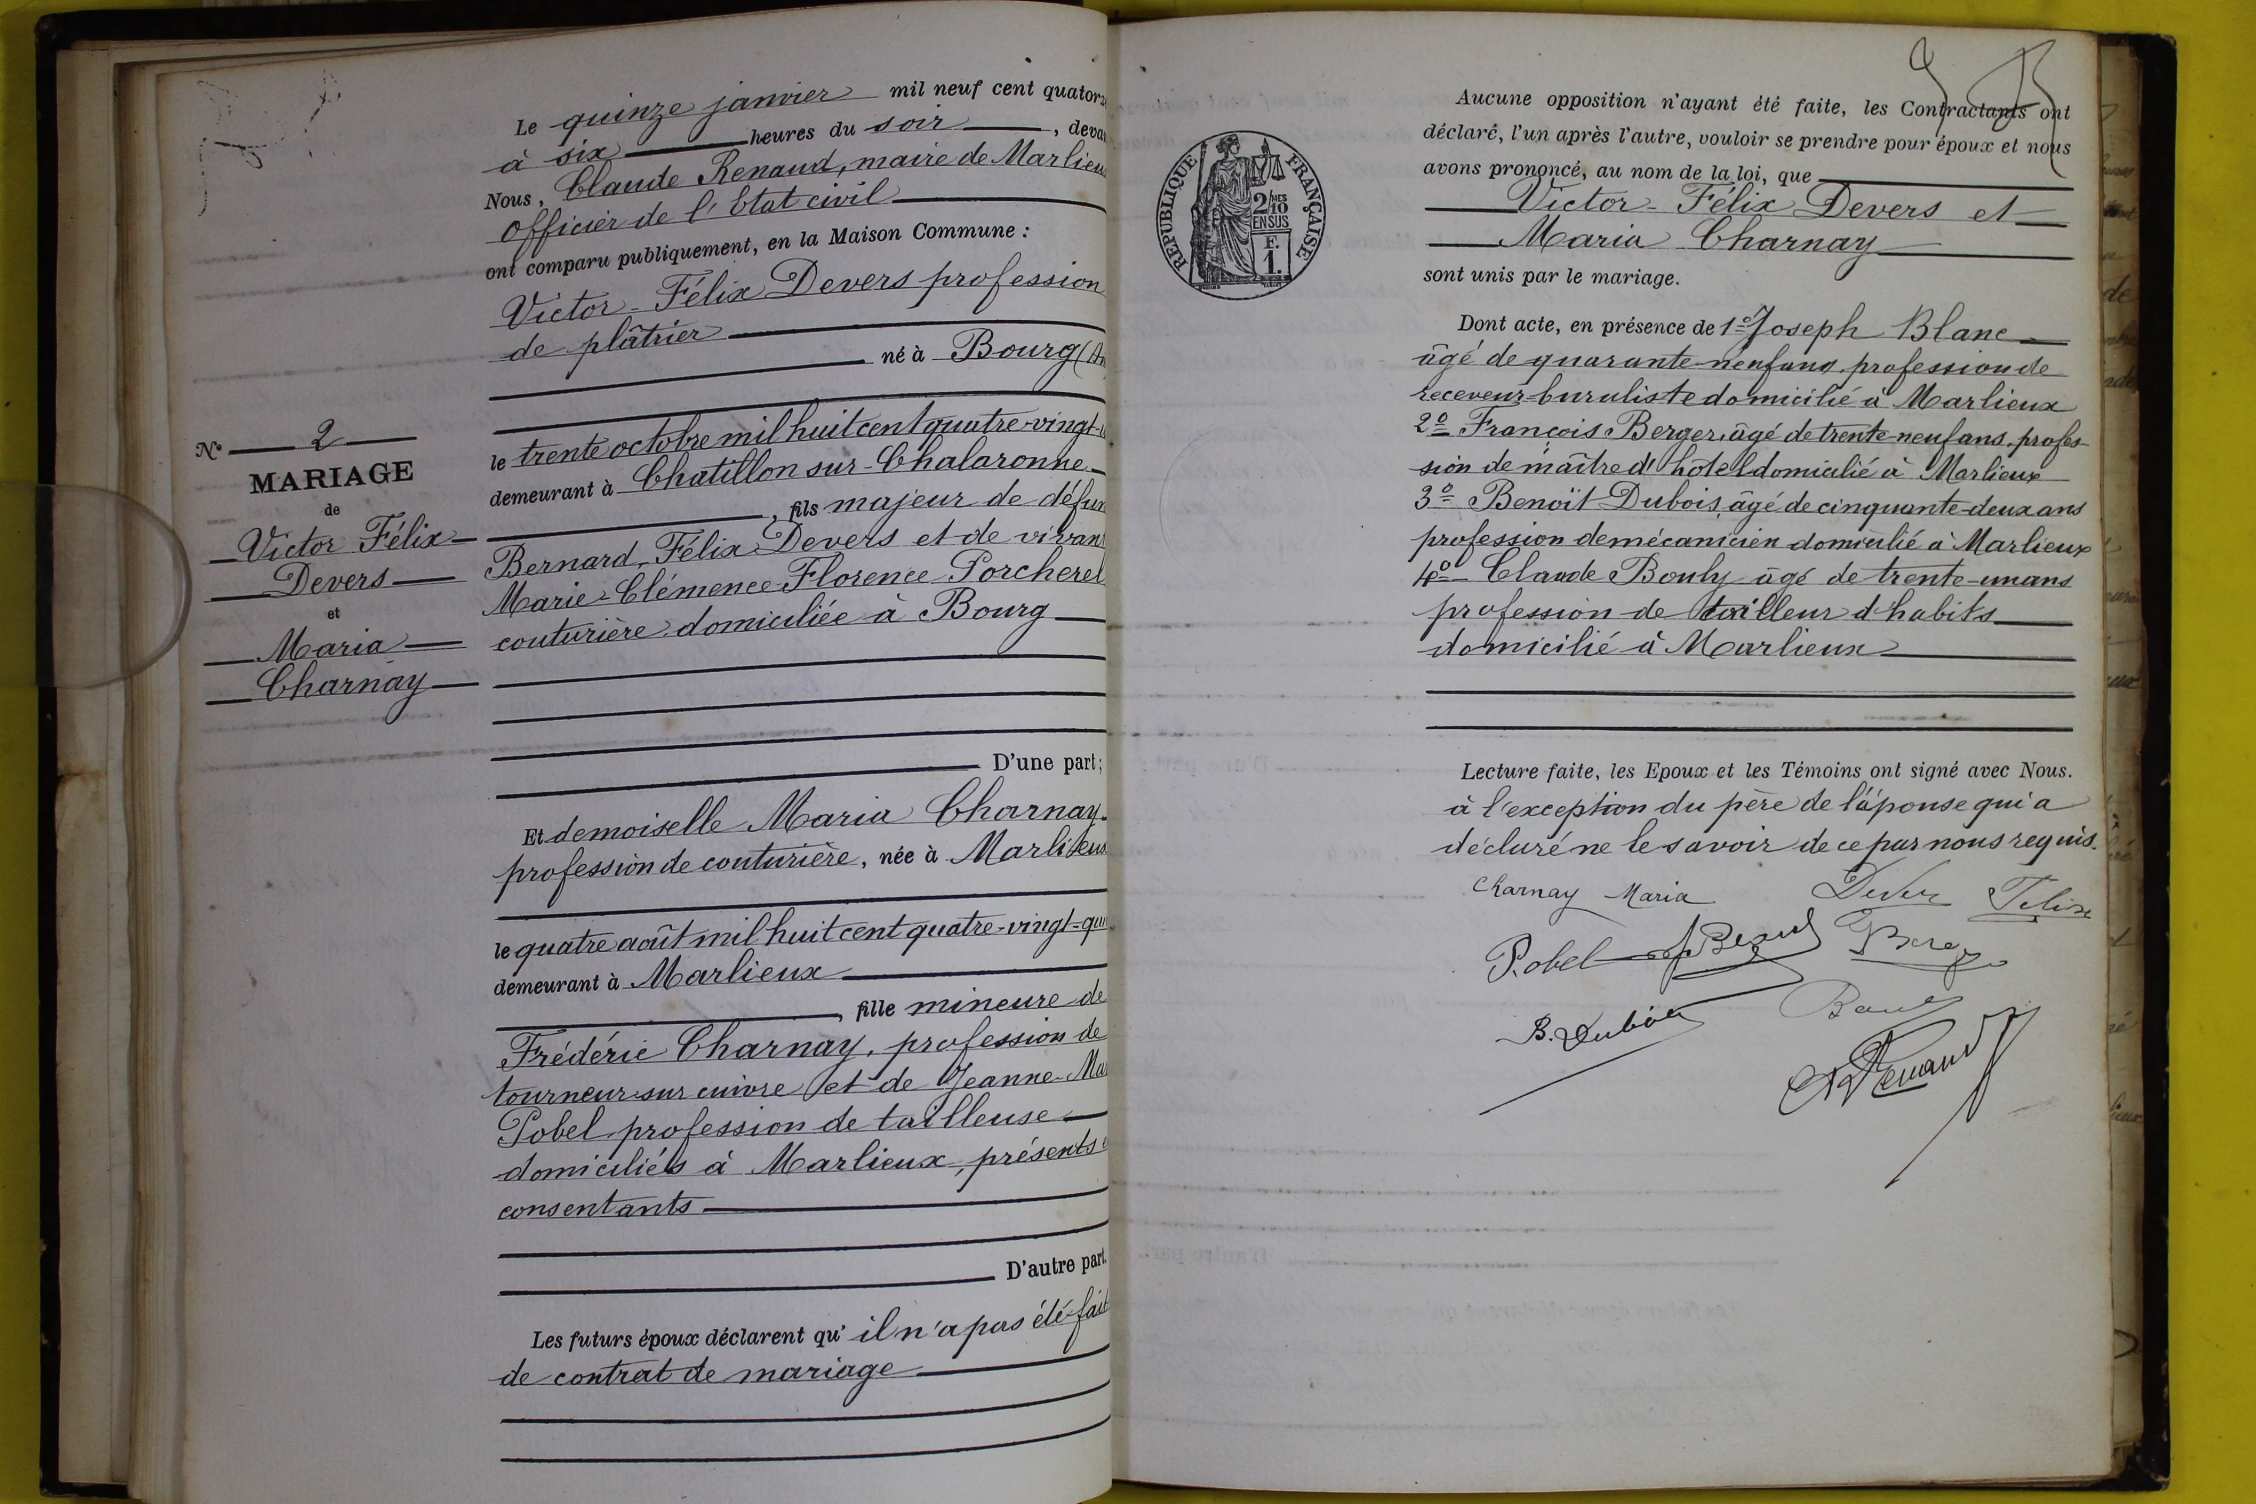 Le quinze janvier mil neuf cent quatorz
à six heures du soir, deva
Nous, Claude Renaud, maire de Marlieu
officier de l'Etat civil
ont comparu publiquement, en la Maison Commune :
Victor-Félix Devers profession
de plâtrier
né à Bourg (Ain
le trente octobre mil huit cent quatre-vingt-
demeurant à Chatillon sur-Chalaronne
, fils majeur de défun
Bernard-Félix Devers et de vivan
Marie-Clémence-Florence-Porcherel
couturière domiciliée à Bourg
D'une part;
Et demoiselle Maria Charnay
profession de couturière, née à Marlieux
le quatre août mil huit cent quatre-vingt-qui
demeurant à Marlieux
, fille mineure de
Frédéric Charnay, profession de
tourneur sur cuivre et de Jeanne-Mar
Pobel profession de tailleuse
domiciliés à Marlieux, présents e
consentants
D'autre part.
Les futurs époux déclarent qu'il n'a pas été fait
de contrat de mariage
N° 2
MARIAGE
de
Victor Félix
Devers
et
Maria
Charnay
RÉPUBLIQUE FRANÇAISE
2/10 MES
EN SUS
F.
1.
Aucune opposition n'ayant été faite, les Contractants ont
déclaré, l'un après l'autre, vouloir se prendre pour époux et nous
avons prononcé, au nom de la loi, que
Victor-Félix Devers et
Maria Charnay
sont unis par le mariage.
Dont acte, en présence de 1° Joseph Blanc
âgé de quarante-neuf ans profession de
receveur-buraliste domicilié à Marlieux
2° François Berger, âgé de trente-neuf ans, profes-
sion de maître d'hôtel domicilié à Marlieux
3° Benoït Dubois, âgé de cinquante-deux ans
profession de mécanicien domicilié à Marlieux
4° Claude Bouly âgé de trente-un ans
profession de tailleur d'habits
domicilié à Marlieux
Lecture faite, les Epoux et les Témoins ont signé avec Nous.
à l'exception du père de l'épouse qui a
déclaré ne le savoir de ce par nous requis.
Charnay Maria Dever Félix
P. obel
B. Dubois
Renaud